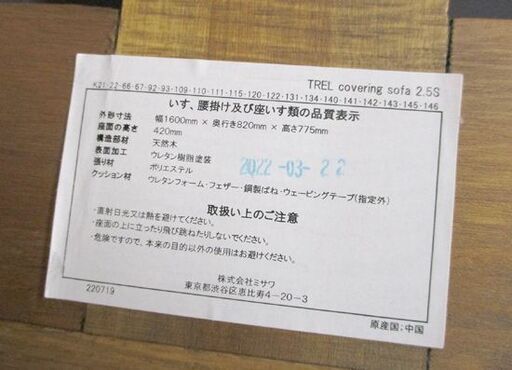 TREL covering sofa 2.5S
K21･22･66･67･92･93･109･110･111･115･120･122･131･134･140･141･142･143･145･146
いす、腰掛け及び座いす類の品質表示
外形寸法 幅1600mm × 奥行き820mm × 高さ775mm
座面の高さ 420mm
構造部材 天然木
表面加工 ウレタン樹脂塗装
張り材 ポリエステル
クッション材 ウレタンフォーム・フェザー・鋼製ばね・ウェービングテープ(指定外)
2022-03-22
取扱い上のご注意
・直射日光又は熱を避けてください。
・座面の上に立ったり飛び跳ねたりしないでください。
・危険ですので、本来の目的以外の使用はお避けください。
株式会社ミサワ
東京都渋谷区恵比寿4-20-3
220719
原産国:中国